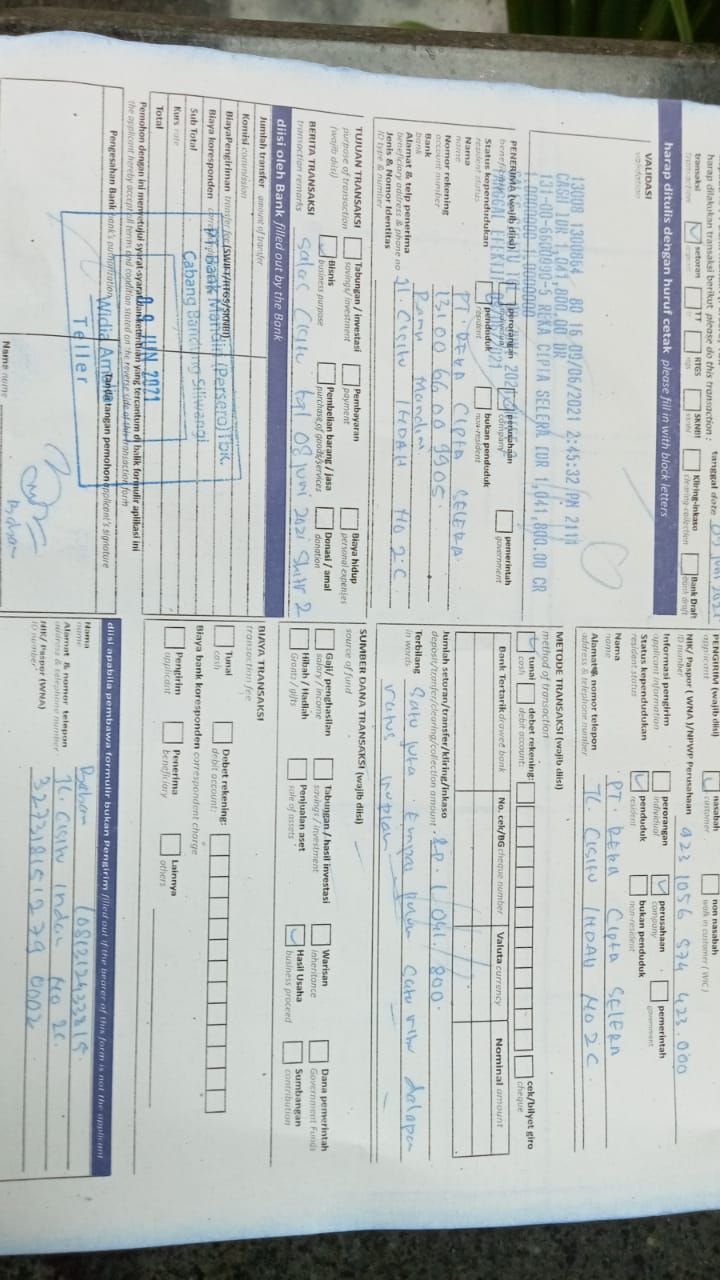 harap dilakukan transaksi berikut please do this transaction :
tanggal date 09 JUN 2021
transaksi
transaction
setoran
TT
RTGS
rtgs
SKNBI
sknbi
Kliring-inkaso
clearing-collection
Bank Draft
bank draft
harap ditulis dengan huruf cetak please fill in with block letters
VALIDASI
validation
13008 1300864 80 16 09/06/2021 2:45:32 PM 2111
CASH IDR 1,041,800.00 DR
131-00-6600990-5 REKA CIPTA SELERA IDR 1,041,800.00 CR
PENERIMA (wajib diisi)
perorangan
perusahaan
company
pemerintah
government
Status kependudukan
resident status
penduduk
resident
bukan penduduk
non-resident
Nama
name
PT. REKA CIPTA SELERA
Nomor rekening
account number
131 00 6600 9905
Bank
bank
Bank Mandiri
Alamat & telp penerima
beneficiary address & phone no
Jl. Cisitu INDAH NO 2C
Jenis & Nomor Identitas
ID type & number
TUJUAN TRANSAKSI
purpose of transaction
(wajib diisi)
Tabungan / investasi
savings/ investment
Pembayaran
payment
Biaya hidup
personal expenses
Bisnis
business purpose
Pembelian barang / jasa
purchase of goods/services
Donasi / amal
donation
BERITA TRANSAKSI
transaction remarks
Sales Cisitu tgl 08 Juni 2021 Shift 2
diisi oleh Bank filled out by the Bank
Jumlah transfer amount of transfer
Komisi commission
Biaya Pengiriman transfer fee (SWIFT/RTGS/SKNBI)
Biaya koresponden
Sub Total
Kurs rate
Total
PT. Bank Mandiri (Persero) Tbk.
Cabang Bandung Siliwangi
09 JUN 2021
Teller
Pemohon dengan ini menyetujui syarat-syarat dan ketentuan yang tercantum di balik formulir aplikasi ini
the applicant hereby accept all terms and condition stated on the reverse side of the transaction form
Pengesahan Bank bank's authorization
Tanda tangan pemohon applicant's signature
Name name
PENGIRIM (wajib diisi)
applicant
nasabah
customer
non nasabah
walk in customer (WIC)
NIK/ Paspor ( WNA )/NPWP Perusahaan
ID number
923 1056 574 423.000
Informasi pengirim
applicant information
perorangan
individual
perusahaan
company
pemerintah
government
Status kependudukan
resident status
penduduk
resident
bukan penduduk
non-resident
Nama
name
PT. REKA CIPTA SELERA
Alamat & nomor telepon
address & telephone number
JL. CISITU INDAH NO 2C
METODE TRANSAKSI (wajib diisi)
method of transaction
tunai
cash
debet rekening:
debit account:
cek/bilyet giro
cheque
Bank Tertarik drawee bank
No. cek/BG cheque number
Valuta currency
Nominal amount
Jumlah setoran/transfer/kliring/inkaso
deposit/tranfer/clearing/collection amount
Rp. 1.041.800.
Terbilang
in words
Satu juta Empat puluh satu ribu delapan
ratus rupiah
SUMBER DANA TRANSAKSI (wajib diisi)
source of fund
Gaji/ penghasilan
salary / income
Tabungan / hasil investasi
savings / investment
Warisan
inheritance
Dana pemerintah
Government Funds
Hibah / Hadiah
Grants / gifts
Penjualan aset
sale of assets
Hasil Usaha
business proceed
Sumbangan
contribution
BIAYA TRANSAKSI
transaction fee
Tunai
cash
Debet rekening:
debit account:
Biaya bank koresponden correspondent charge
Pengirim
applicant
Penerima
beneficiary
Lainnya
others
diisi apabila pembawa formulir bukan Pengirim filled out if the bearer of this form is not the applicant
Nama
name
Alamat & nomor telepon
address & telephone number
JL. Cisitu Indah No 2C.
NIK/ Paspor (WNA)
ID number